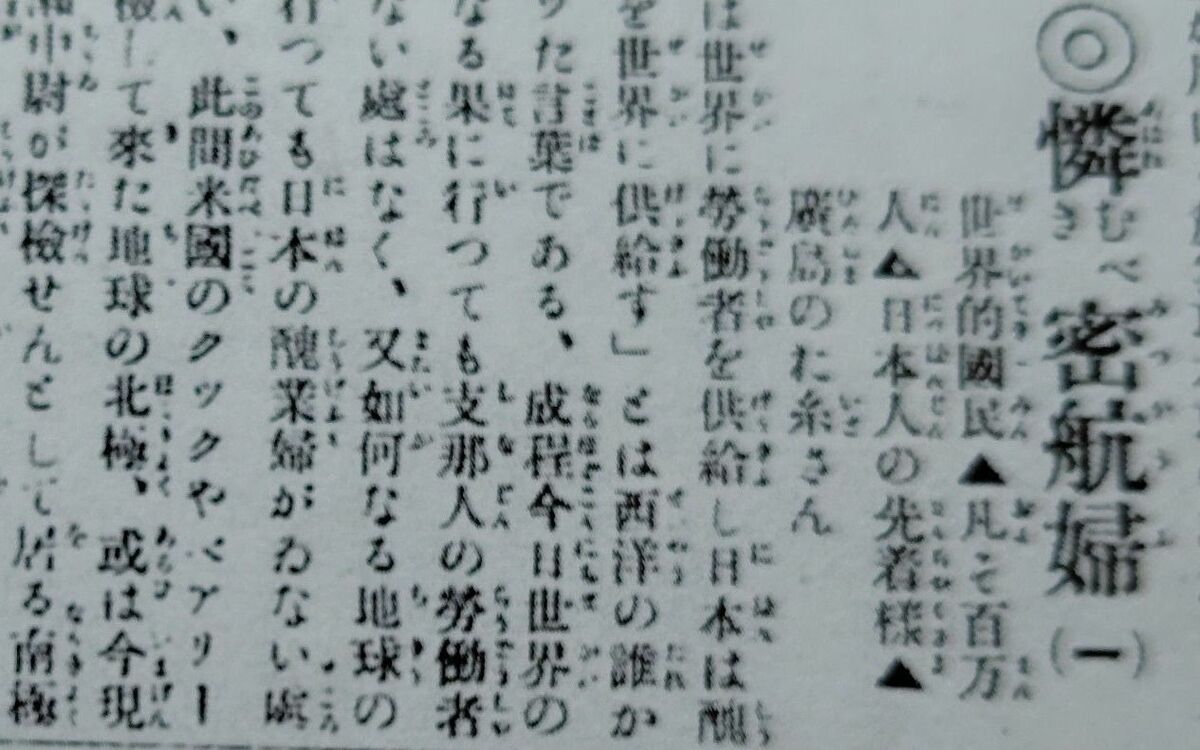 ◎憐むべき密航婦（一）
世界的國民▲凡そ百万
人▲日本人の先着様▲
廣島のお糸さん
は世界に勞働者を供給し日本は醜
を世界に供給す」とは西洋の誰か
つた言葉である、成程今日世界の
なる果に行つても支那人の勞働者
ない處はなく、又如何なる地球の
行つても日本の醜業婦がゐない處
い、此間米國のクックやペアリー
檢して來た地球の北極、或は今現
中尉が探檢せんとして居る南極